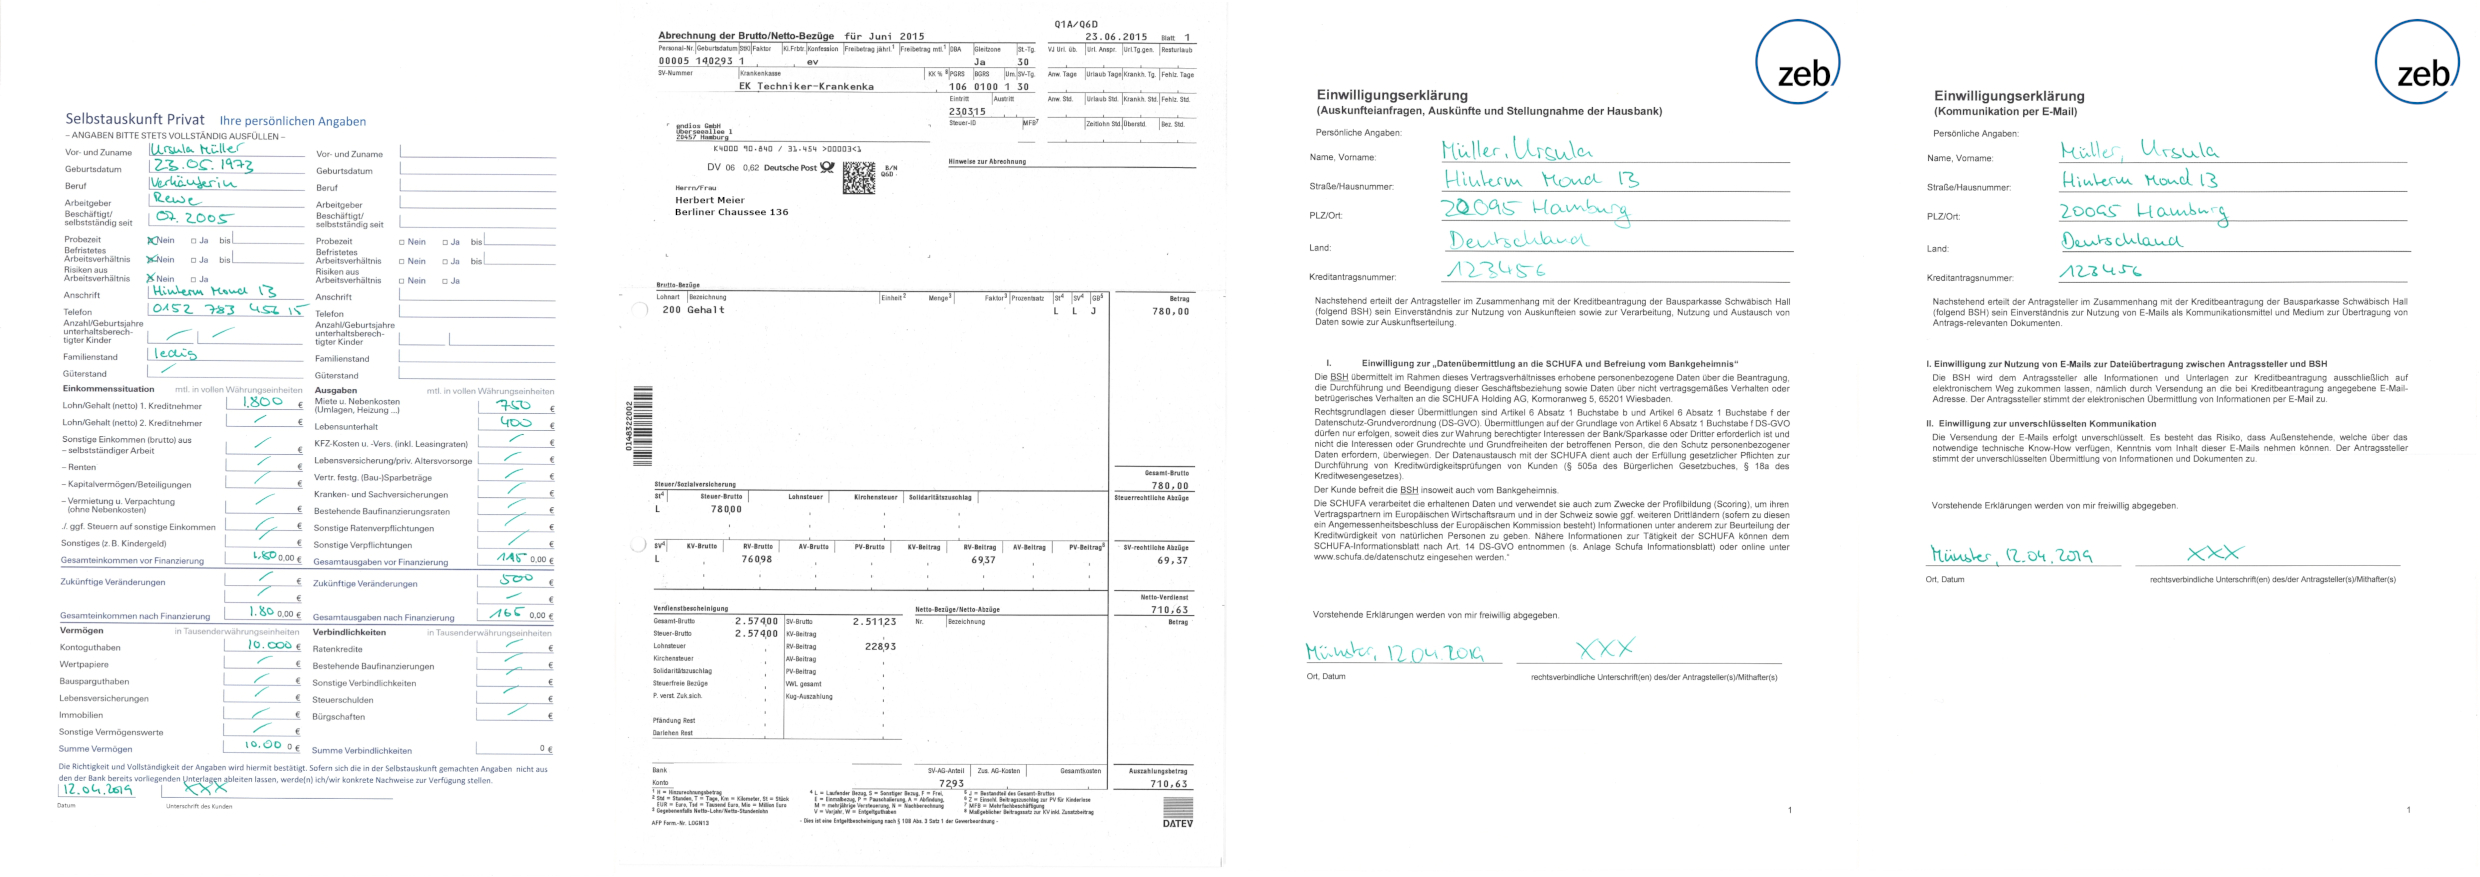 Selbstauskunft Privat Ihre persönlichen Angaben
– ANGABEN BITTE STETS VOLLSTÄNDIG AUSFÜLLEN –
Vor- und Zuname Ursula Müller Vor- und Zuname
Geburtsdatum 23.05.1973 Geburtsdatum
Beruf Verkäuferin Beruf
Arbeitgeber Rewe Arbeitgeber
Beschäftigt/ selbstständig seit 07.2005 Beschäftigt/ selbstständig seit
Probezeit Nein Ja bis Probezeit Nein Ja bis
Befristetes Arbeitsverhältnis Nein Ja bis Befristetes Arbeitsverhältnis Nein Ja bis
Risiken aus Arbeitsverhältnis Nein Ja Risiken aus Arbeitsverhältnis Nein Ja
Anschrift Hinterm Mond 13 Anschrift
Telefon 0152 783 456 15 Telefon
Anzahl/Geburtsjahre unterhaltsberech- tigter Kinder Anzahl/Geburtsjahre unterhaltsberech- tigter Kinder
Familienstand ledig Familienstand
Güterstand Güterstand
Einkommenssituation mtl. in vollen Währungseinheiten Ausgaben mtl. in vollen Währungseinheiten
Lohn/Gehalt (netto) 1. Kreditnehmer 1.800 € Miete u. Nebenkosten (Umlagen, Heizung ...) 750 €
Lohn/Gehalt (netto) 2. Kreditnehmer € Lebensunterhalt 400 €
Sonstige Einkommen (brutto) aus
– selbstständiger Arbeit € KFZ-Kosten u. -Vers. (inkl. Leasingraten) €
– Renten € Lebensversicherung/priv. Altersvorsorge €
– Kapitalvermögen/Beteiligungen € Vertr. festg. (Bau-)Sparbeträge €
– Vermietung u. Verpachtung (ohne Nebenkosten) € Kranken- und Sachversicherungen €
Bestehende Baufinanzierungsraten €
./. ggf. Steuern auf sonstige Einkommen € Sonstige Ratenverpflichtungen €
Sonstiges (z. B. Kindergeld) € Sonstige Verpflichtungen €
Gesamteinkommen vor Finanzierung 1.80 0,00 € Gesamtausgaben vor Finanzierung 115 0,00 €
Zukünftige Veränderungen € Zukünftige Veränderungen 500 €
Gesamteinkommen nach Finanzierung 1.80 0,00 € Gesamtausgaben nach Finanzierung 165 0,00 €
Vermögen in Tausenderwährungseinheiten Verbindlichkeiten in Tausenderwährungseinheiten
Kontoguthaben 10.000 € Ratenkredite €
Wertpapiere € Bestehende Baufinanzierungen €
Bausparguthaben € Sonstige Verbindlichkeiten €
Lebensversicherungen € Steuerschulden €
Immobilien € Bürgschaften €
Sonstige Vermögenswerte €
Summe Vermögen 10.00 0 € Summe Verbindlichkeiten 0 €
Die Richtigkeit und Vollständigkeit der Angaben wird hiermit bestätigt. Sofern sich die in der Selbstauskunft gemachten Angaben nicht aus
den der Bank bereits vorliegenden Unterlagen ableiten lassen, werde(n) ich/wir konkrete Nachweise zur Verfügung stellen.
12.04.2019 XXX
Datum Unterschrift des Kunden
Q1A/Q6D
Abrechnung der Brutto/Netto-Bezüge für Juni 2015 23.06.2015 Blatt 1
Personal-Nr. Geburtsdatum StKl Faktor Ki.Frbtr. Konfession Freibetrag jährl. Freibetrag mtl. DBA Gleitzone St.-Tg. VJ Url. üb. Url. Anspr. Url.Tg.gen. Resturlaub
00005 140293 1 ev Ja 30
SV-Nummer Krankenkasse KK % PGRS BGRS Um. SV-Tg. Anw. Tage Urlaub Tage Krankh. Tg. Fehlz. Tage
EK Techniker-Krankenka 106 0100 1 30
Eintritt Austritt Anw. Std. Urlaub Std. Krankh. Std. Fehlz. Std.
230315
Steuer-ID MFB Zeitlohn Std. Überstd. Bez. Std.
endios GmbH
Überseeallee 1
20457 Hamburg
K4000 90.640 / 31.454 >00003<1
DV 06 0,62 Deutsche Post B/N Q6D
Hinweise zur Abrechnung
Herrn/Frau
Herbert Meier
Berliner Chaussee 136
Brutto-Bezüge
Lohnart Bezeichnung Einheit Menge Faktor Prozentsatz St SV GB Betrag
200 Gehalt L L J 780,00
0148322002
Gesamt-Brutto
780,00
Steuer/Sozialversicherung
St Steuer-Brutto Lohnsteuer Kirchensteuer Solidaritätszuschlag Steuerrechtliche Abzüge
L 780,00
SV KV-Brutto RV-Brutto AV-Brutto PV-Brutto KV-Beitrag RV-Beitrag AV-Beitrag PV-Beitrag SV-rechtliche Abzüge
L 760,98 69,37 69,37
Netto-Verdienst
710,63
Verdienstbescheinigung Netto-Bezüge/Netto-Abzüge
Gesamt-Brutto 2.574,00 SV-Brutto 2.511,23 Nr. Bezeichnung Betrag
Steuer-Brutto 2.574,00 KV-Beitrag
Lohnsteuer RV-Beitrag 228,93
Kirchensteuer AV-Beitrag
Solidaritätszuschlag PV-Beitrag
Steuerfreie Bezüge VWL gesamt
P. verst. Zuk.sich. Kug-Auszahlung
Pfändung Rest
Darlehen Rest
Bank SV-AG-Anteil Zus. AG-Kosten Gesamtkosten Auszahlungsbetrag
Konto 72,93 710,63
AFP Form.-Nr. LOGN13 - Dies ist eine Entgeltbescheinigung nach § 108 Abs. 3 Satz 1 der Gewerbeordnung -
DATEV
zeb
Einwilligungserklärung
(Auskunfteianfragen, Auskünfte und Stellungnahme der Hausbank)
Persönliche Angaben:
Name, Vorname: Müller, Ursula
Straße/Hausnummer: Hinterm Mond 13
PLZ/Ort: 20095 Hamburg
Land: Deutschland
Kreditantragsnummer: 123456
Nachstehend erteilt der Antragsteller im Zusammenhang mit der Kreditbeantragung der Bausparkasse Schwäbisch Hall
(folgend BSH) sein Einverständnis zur Nutzung von Auskunfteien sowie zur Verarbeitung, Nutzung und Austausch von
Daten sowie zur Auskunftserteilung.
I. Einwilligung zur „Datenübermittlung an die SCHUFA und Befreiung vom Bankgeheimnis“
Die BSH übermittelt im Rahmen dieses Vertragsverhältnisses erhobene personenbezogene Daten über die Beantragung,
die Durchführung und Beendigung dieser Geschäftsbeziehung sowie Daten über nicht vertragsgemäßes Verhalten oder
betrügerisches Verhalten an die SCHUFA Holding AG, Kormoranweg 5, 65201 Wiesbaden.
Rechtsgrundlagen dieser Übermittlungen sind Artikel 6 Absatz 1 Buchstabe b und Artikel 6 Absatz 1 Buchstabe f der
Datenschutz-Grundverordnung (DS-GVO). Übermittlungen auf der Grundlage von Artikel 6 Absatz 1 Buchstabe f DS-GVO
dürfen nur erfolgen, soweit dies zur Wahrung berechtigter Interessen der Bank/Sparkasse oder Dritter erforderlich ist und
nicht die Interessen oder Grundrechte und Grundfreiheiten der betroffenen Person, die den Schutz personenbezogener
Daten erfordern, überwiegen. Der Datenaustausch mit der SCHUFA dient auch der Erfüllung gesetzlicher Pflichten zur
Durchführung von Kreditwürdigkeitsprüfungen von Kunden (§ 505a des Bürgerlichen Gesetzbuches, § 18a des
Kreditwesengesetzes).
Der Kunde befreit die BSH insoweit auch vom Bankgeheimnis.
Die SCHUFA verarbeitet die erhaltenen Daten und verwendet sie auch zum Zwecke der Profilbildung (Scoring), um ihren
Vertragspartnern im Europäischen Wirtschaftsraum und in der Schweiz sowie ggf. weiteren Drittländern (sofern zu diesen
ein Angemessenheitsbeschluss der Europäischen Kommission besteht) Informationen unter anderem zur Beurteilung der
Kreditwürdigkeit von natürlichen Personen zu geben. Nähere Informationen zur Tätigkeit der SCHUFA können dem
SCHUFA-Informationsblatt nach Art. 14 DS-GVO entnommen (s. Anlage Schufa Informationsblatt) oder online unter
www.schufa.de/datenschutz eingesehen werden.“
Vorstehende Erklärungen werden von mir freiwillig abgegeben.
Münster, 12.04.2019 XXX
Ort, Datum rechtsverbindliche Unterschrift(en) des/der Antragsteller(s)/Mithafter(s)
1
zeb
Einwilligungserklärung
(Kommunikation per E-Mail)
Persönliche Angaben:
Name, Vorname: Müller, Ursula
Straße/Hausnummer: Hinterm Mond 13
PLZ/Ort: 20095 Hamburg
Land: Deutschland
Kreditantragsnummer: 123456
Nachstehend erteilt der Antragsteller im Zusammenhang mit der Kreditbeantragung der Bausparkasse Schwäbisch Hall
(folgend BSH) sein Einverständnis zur Nutzung von E-Mails als Kommunikationsmittel und Medium zur Übertragung von
Antrags-relevanten Dokumenten.
I. Einwilligung zur Nutzung von E-Mails zur Dateiübertragung zwischen Antragssteller und BSH
Die BSH wird dem Antragsteller alle Informationen und Unterlagen zur Kreditbeantragung ausschließlich auf
elektronischem Weg zukommen lassen, nämlich durch Versendung an die bei Kreditbeantragung angegebene E-Mail-
Adresse. Der Antragsteller stimmt der elektronischen Übermittlung von Informationen per E-Mail zu.
II. Einwilligung zur unverschlüsselten Kommunikation
Die Versendung der E-Mails erfolgt unverschlüsselt. Es besteht das Risiko, dass Außenstehende, welche über das
notwendige technische Know-How verfügen, Kenntnis vom Inhalt dieser E-Mails nehmen können. Der Antragsteller
stimmt der unverschlüsselten Übermittlung von Informationen und Dokumenten zu.
Vorstehende Erklärungen werden von mir freiwillig abgegeben.
Münster, 12.04.2019 XXX
Ort, Datum rechtsverbindliche Unterschrift(en) des/der Antragsteller(s)/Mithafter(s)
1